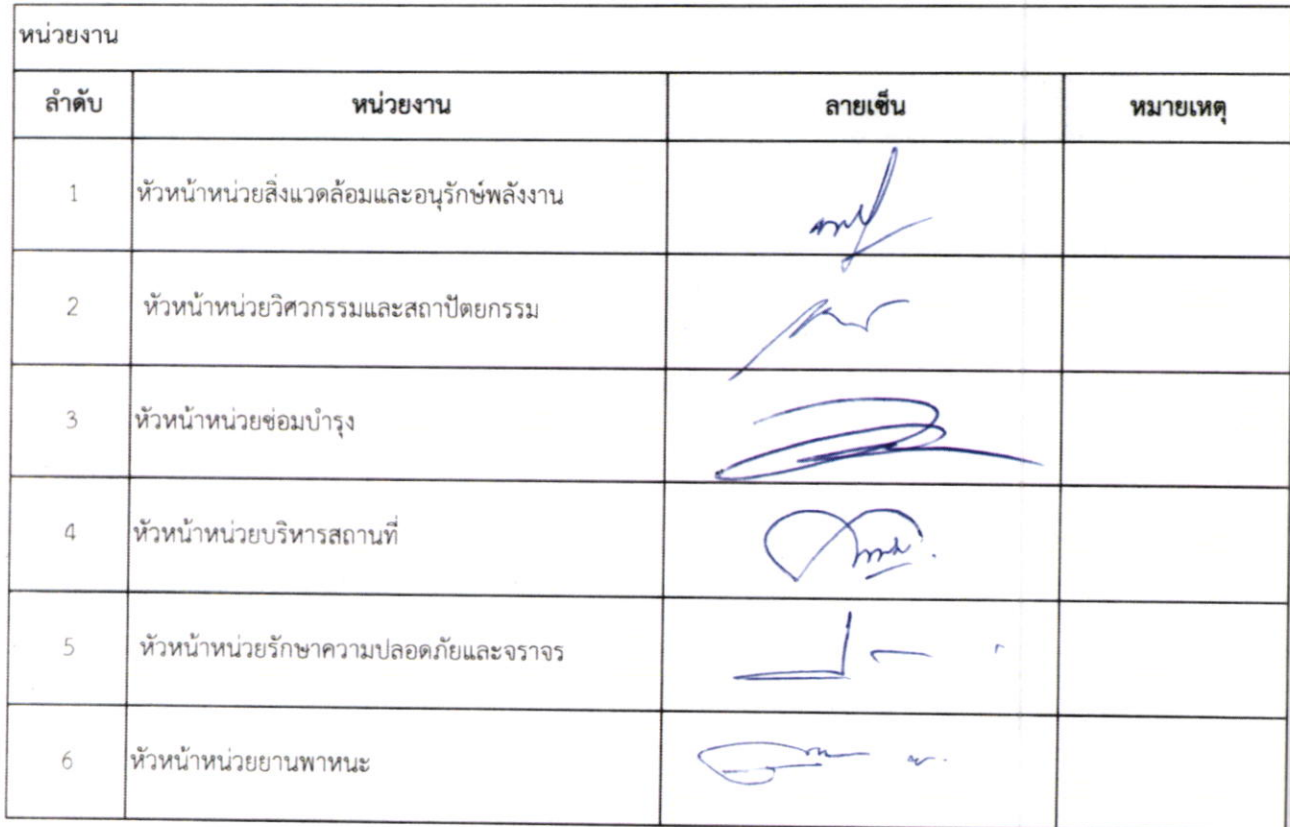 หน่วยงาน
ลำดับ หน่วยงาน ลายเซ็น หมายเหตุ
1 หัวหน้าหน่วยสิ่งแวดล้อมและอนุรักษ์พลังงาน
2 หัวหน้าหน่วยวิศวกรรมและสถาปัตยกรรม
3 หัวหน้าหน่วยซ่อมบำรุง
4 หัวหน้าหน่วยบริหารสถานที่
5 หัวหน้าหน่วยรักษาความปลอดภัยและจราจร
6 หัวหน้าหน่วยยานพาหนะ